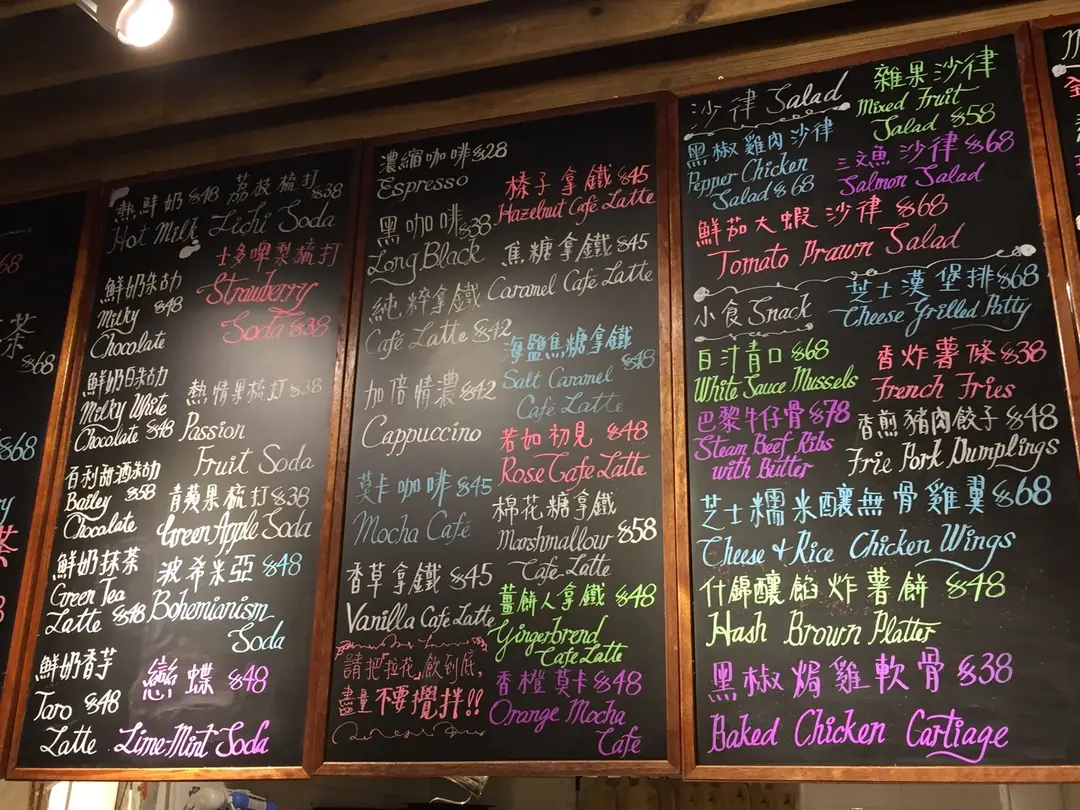 茶
68
68
熱鮮奶 $48
Hot Milk
鮮奶朱古力
Milky $48
Chocolate
鮮奶白朱古力
Milky White
Chocolate $48
百利甜酒朱古力
Bailey $58
Chocolate
鮮奶抹茶
Green Tea
Latte $48
鮮奶香芋
Taro $48
Latte
荔枝梳打 $38
Lichi Soda
士多啤梨梳打
Strawberry
Soda $38
熱情果梳打 $38
Passion
Fruit Soda
青蘋果梳打 $38
Green Apple Soda
波希米亞 $48
Bohemianism
Soda
戀蝶 $48
Lime-Mint Soda
濃縮咖啡 $28
Espresso
黑咖啡 $38
Long Black
純粹拿鐵
Café Latte $42
加倍情濃 $42
Cappuccino
莫卡咖啡 $45
Mocha Café
香草拿鐵 $45
Vanilla Cafe Latte
請把拉花飲到底,
盡量不要攪拌!!
榛子拿鐵 $45
Hazelnut Café Latte
焦糖拿鐵 $45
Caramel Cafe Latte
海鹽焦糖拿鐵
Salt Caramel $48
Café Latte
若如初見 $48
Rose Cafe Latte
棉花糖拿鐵
Marshmallow $58
Cafe Latte
薑餅人拿鐵 $48
Gingerbrend
Cafe Latte
香橙莫卡 $48
Orange Mocha
Café
沙律 Salad
雜果沙律
Mixed Fruit
Salad $58
黑椒雞肉沙律
Pepper Chicken
Salad $68
三文魚沙律 $68
Salmon Salad
鮮茄大蝦沙律 $68
Tomato Prawn Salad
小食 Snack
芝士漢堡排 $68
Cheese Grilled Patty
白汁青口 $68
White Sauce Mussels
香炸薯條 $38
French Fries
巴黎牛仔骨 $78
Steam Beef Ribs
with Butter
香煎豬肉餃子 $48
Frie Pork Dumplings
芝士糯米釀無骨雞翼 $68
Cheese & Rice Chicken Wings
什錦釀餡炸薯餅 $48
Hash Brown Platter
黑椒焗雞軟骨 $38
Baked Chicken Cartiage